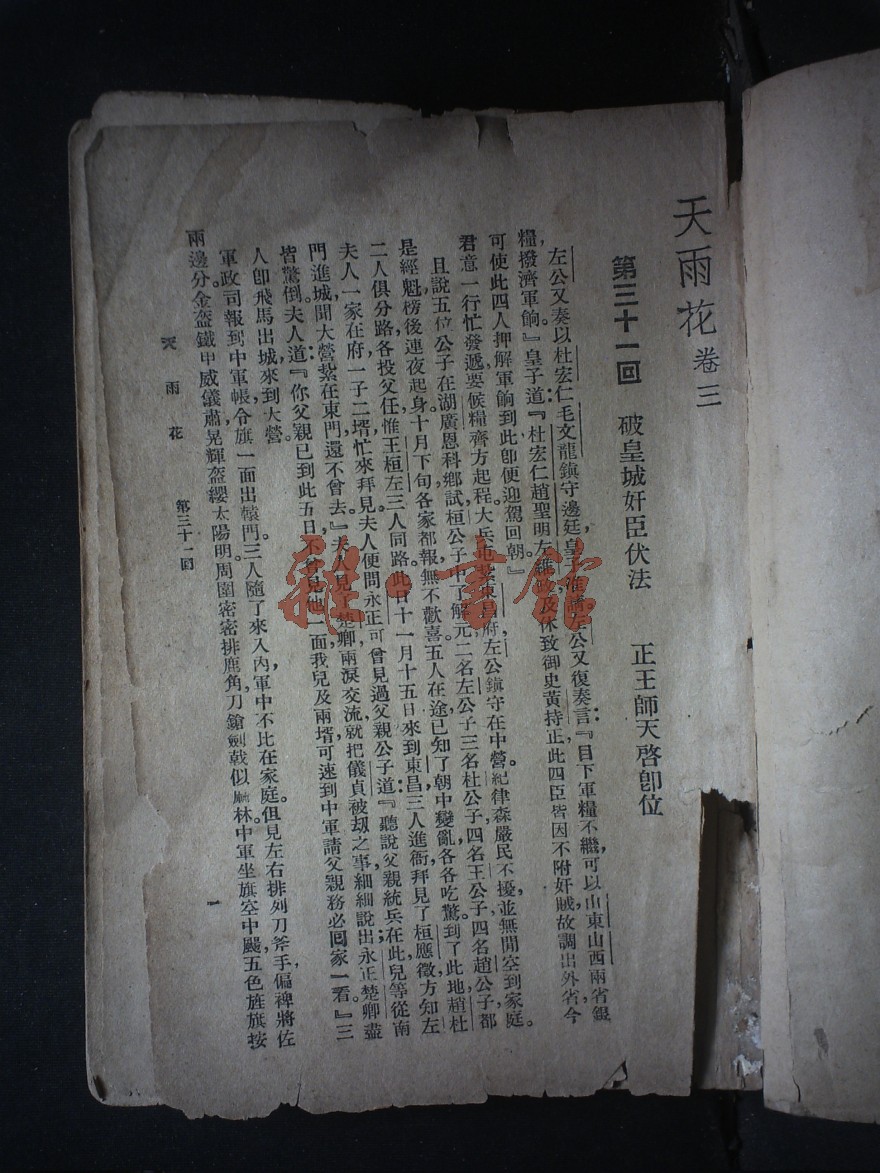 天雨花 卷三
第三十一回 破皇城奸臣伏法 正王師天啓卽位
左公又奏以杜宏仁毛文龍鎮守邊廷皇子准請左公又復奏言：『目下軍糧不繼，可以山東山西兩省銀
糧，撥濟軍餉。』皇子道：『杜宏仁趙聖明左維 及休致御史黃持正此四臣皆因不附奸賊，故調出外省，今
可使此四人押解軍餉到此卽便迎駕回朝。』
君意一行忙發遞，要候糧齊方起程。大兵 紮東昌府，左公鎮守在中營。紀律森嚴民不擾，並無閒空到家庭。
且說五位公子在湖廣恩科鄉試桓公子中了解元二名左公子三名杜公子四名王公子四名趙公子都
是經魁榜後連夜起身十月下旬各家都報無不歡喜五人在途已知了朝中變亂各各吃驚到了此地趙杜
二人俱分路各投父任惟王桓左三人同路此日十一月十五日來到東昌，三人進衙拜見了桓應徵方知左
夫人一家在府一子二壻忙來拜見夫人便問永正可曾見過父親公子道：『聽說父親統兵在此，兒等從南
門進城聞大營紮在東門，還不曾去。』夫人見了楚卿兩淚交流，就把儀貞被刼之事，細細說出永正楚卿盡
皆驚倒夫人道：『你父親已到此五日，不曾見他一面我兒及兩壻可速到中軍請父親務必囘家一看。』三
人卽飛馬出城來到大營。
軍政司報到中軍帳，令旗一面出轅門。三人隨了來入內，軍中不比在家庭。但見左右排列刀斧手，偏裨將佐
兩邊分。金盔鐵甲威儀肅，晃輝盔纓太陽明。周圍密密排鹿角，刀鎗劍戟似麻林。中軍坐旗空中颺，五色旌旗按
天雨花 第三十一回 一
雜·書館